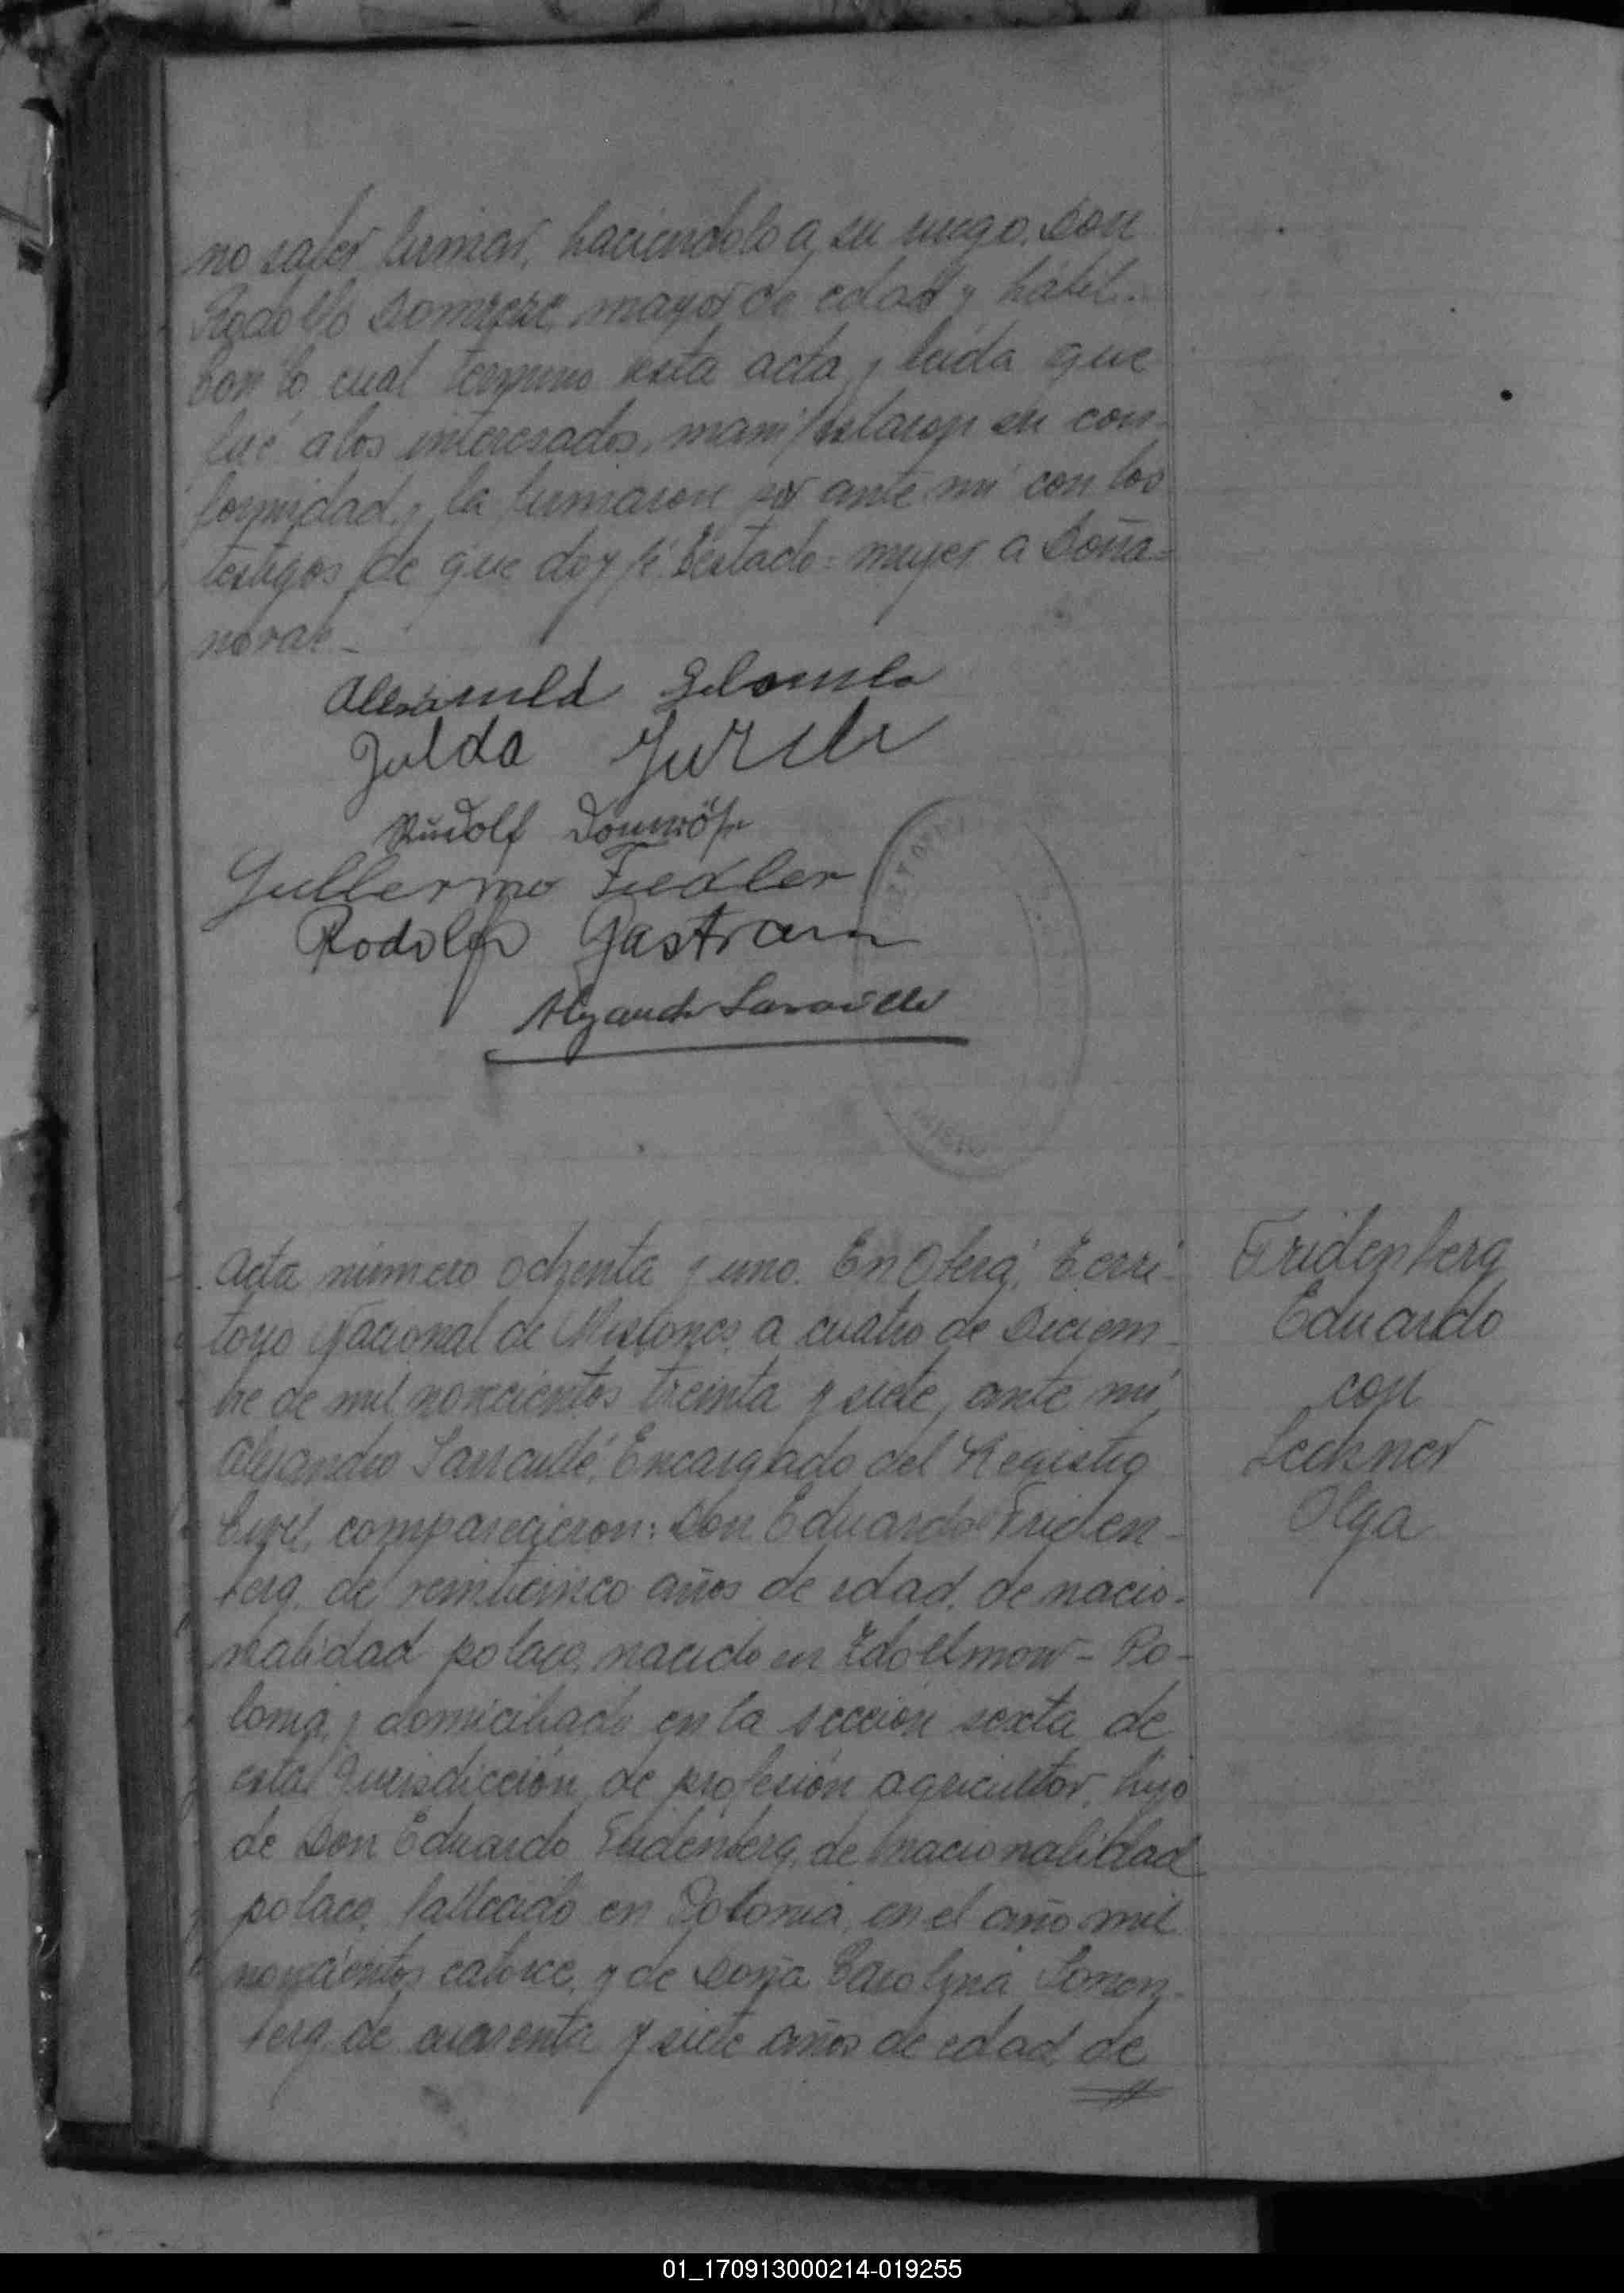 no saber firmar, haciendolo a su ruego, Don
Rodolfo mayor de edad y habil.
Con lo cual termino esta acta y leida que
fué a los interesados, manifestaron su con-
formidad y la firmaron por ante mi con los
testigos de que doy fé. Testado = mujer a Doña =
no vale -
Rudolf
Guillermo Fiedler
Rodolfo Gastram
Acta número ochenta y uno. En Oberá, Terri-
torio Nacional de Misiones, a cuatro de Diciem-
bre de mil novecientos treinta y siete, ante mi,
Alejandro Encargado del Registro
Civil, comparecieron: Don Eduardo Friden-
berg, de veinticinco años de edad, de nacio-
nalidad polaco, nacido en - Po-
lonia, y domiciliado en la sección sexta de
esta Jurisdicción, de profesión agricultor, hijo
de Don Eduardo Fridenberg, de nacionalidad
polaco, fallecido en Polonia, en el año mil
novecientos catorce, y de Doña Carolina Sonen-
berg, de cuarenta y siete años de edad, de
Fridenberg
Eduardo
con
Leckner
Olga
01_170913000214-019255